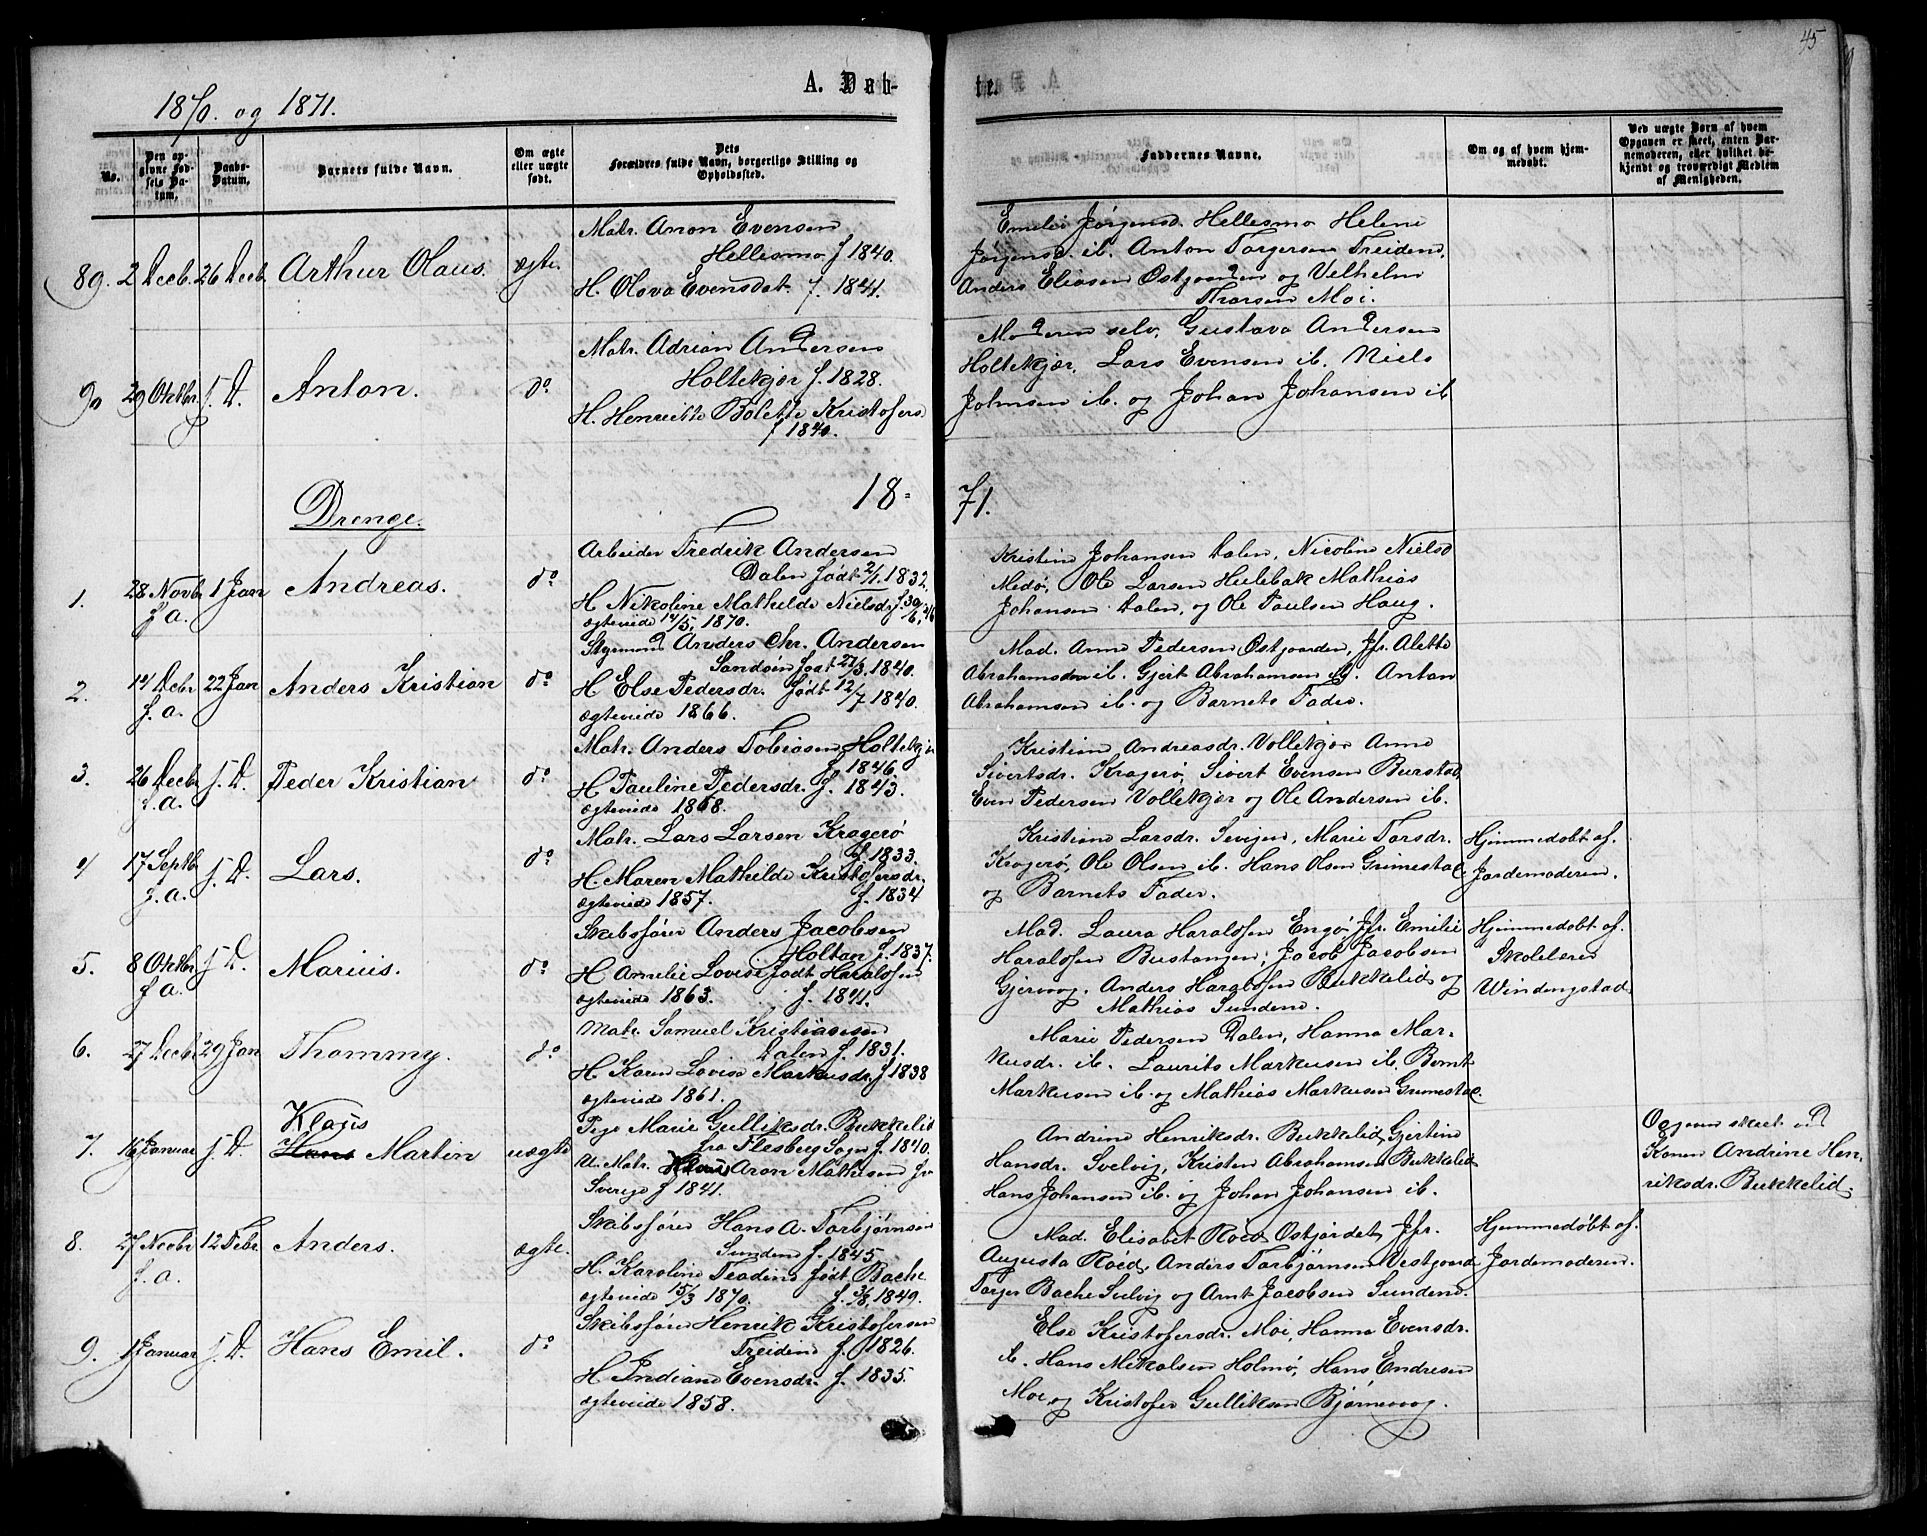 45
A. Dab-
te.
1870. og 1871.
No.
Den op-
givne Fød-
sels Da-
tum.
Daabs-
Datum.
Barnets fulde Navn.
Om ægte
eller uægte
født.
Dets
Forældres fulde Navn, borgerlige Stilling og
Opholdssted.
Faddernes Navne.
Om og af hvem hjem-
medøbt.
Ved uægte Børn af hvem
Opgaven er skeet, enten Bar-
nemoderen, eller hvilket be-
kjendt og troværdigt Medlem
af Menigheden.
89. 2 Decb. 26 Decb. Arthur Olaus. ægte.
Matr. Aron Evensen
Hellesmo f 1840.
H. Olava Evensdat. f. 1841.
Emelie Jørgensd. Hellesmo Helene
Jørgensd. ib. Anton Torgersen Treiden,
Anders Eliasen Østgaarden og Velhelm
Thorsen Moi.
90 29 Oktbr. s. D. Anton. do
Matr. Adrian Andersen
Holtekjær f. 1828.
H. Henriette Bolette Kristofersd
f 1840.
Moderen selv, Gustava Andersen
Holtekjær, Lars Evensen ib. Niels
Johnsen ib. og Johan Johansen ib
18-
71.
Drenge.
1. 28 Novb. f a. 1 Jan Andreas. do
Arbeider Fredrik Andersen
Dalen født 2/1. 1832,
H Nikoline Mathilde Nielsdr. f. 30/6, 46
ægteviede 14/5, 1870.
Kristine Johansen Dalen, Nicoline Nielsd
Medø, Ole Larsen Hulebak Mathias
Johansen Dalen, og Ole Paulsen Haug.
2. 14 Debr f. a. 22 Jan Anders Kristian do
Styrmand Anders Chr. Andersen
Sandøen født 21/3. 1840.
H Else Pedersdr. født 12/7 1840.
ægteviede 1866.
Mad. Anne Pedersen Østgaarden, Jfr. Alette
Abrahamsden ib. Gjert Abrahamsen ib. Anton
Abrahamsen ib. og Barnets Fader.
3. 26 Decb f. a. s. D. Peder Kristian do
Matr. Anders Tobiasen Holtekjær
f. 1846.
H Pauline Pedersdr. f. 1843.
ægteviede 1868.
Kristiane Andreasdr. Vollekjær Anne
Sivertsdr. Kragerø, Sivert Evensen Burstad,
Even Pedersen Vollekjær og Ole Andersen ib.
4 17 Septb f. a. s. D. Lars. do
Matr. Lars Larsen Kragerø
f. 1833.
H. Maren Mathilde Kristofersdr.
ægteviede 1857. f. 1834
Kristiane Larsdr. Sevigen, Marie Torsdr.
Kragerø, Ole Olsen ib. Hans Olsen Grimestad
og Barnets Fader.
Hjemmedøbt af.
Jordemoderen.
5. 8 Oktbr f a. s. D. Marius. do
Skibsfører Anders Jacobsen
Holtan f. 1837.
H. Amelie Lovise født Haraldsen
ægteviede 1863. f. 1841.
Mad. Laura Haraldsen Engø, Jfr. Emilie
Haraldsen Bustangen, Jacob Jacobsen
Gjervaag, Anders Haraldsen Bukkelid og
Mathias Sundene.
Hjemmedøbt af.
Skolelærer
Windingstad
6. 27 Decbr 29 Jan Thommy. do
Matr. Samuel Kristiansen
Dalen f. 1831.
H. Karen Lovise Markusdr. f 1838
ægteviede 1861.
Marie Pedersen Dalen, Hanna Mar-
kusdr. ib. Laurits Markusen ib. Bernt
Markusen ib. og Mathias Markusen Grimestad.
Klaus
7. 16 Januar s. D. Hans Martin uægte
Pige Marie Gulliksdr. Bukkelid
fra Flesberg Sogn f. 1840.
U. Matr. Aron Mathisen fra
Sverige f 1841.
Andrine Henriksdr. Bukkelid, Gjertine
Hansdr. Svelvig, Kristen Abrahamsen Bukkelid
Hans Johansen ib. og Johan Johansen ib.
Opgaven skeet ved
Konen Andrine Hen-
riksdr. Bukkelid.
8. 27 Novbr f. a. 12 Febr. Anders. ægte.
Skibsfører Hans A. Torbjørnsen
Sunden f. 1845
H. Karoline Teadine født Bache
ægteviede 15/3 1870. f. 3/8, 1849.
Mad. Elisabet Røed Østjordet, Jfr.
Augusta Røed, Anders Torbjørnsen Vestgaard
Torger Bache Svelvig og Arnt Jacobsen Sundene.
Hjemmedøbt af.
Jordemoderen.
9. 1 Januar s. D. Hans Emil. do
Skibsfører Henrik Kristofersen
Treiden f. 1826.
H Indiane Evensdr. f. 1835.
ægteviede 1858.
Else Kristofersdr. Moi, Hanna Evensdr.
ib. Hans Mikalsen Holmø, Hans Endresen
Moe, og Kristofer Gulliksen Bjørnevaag.